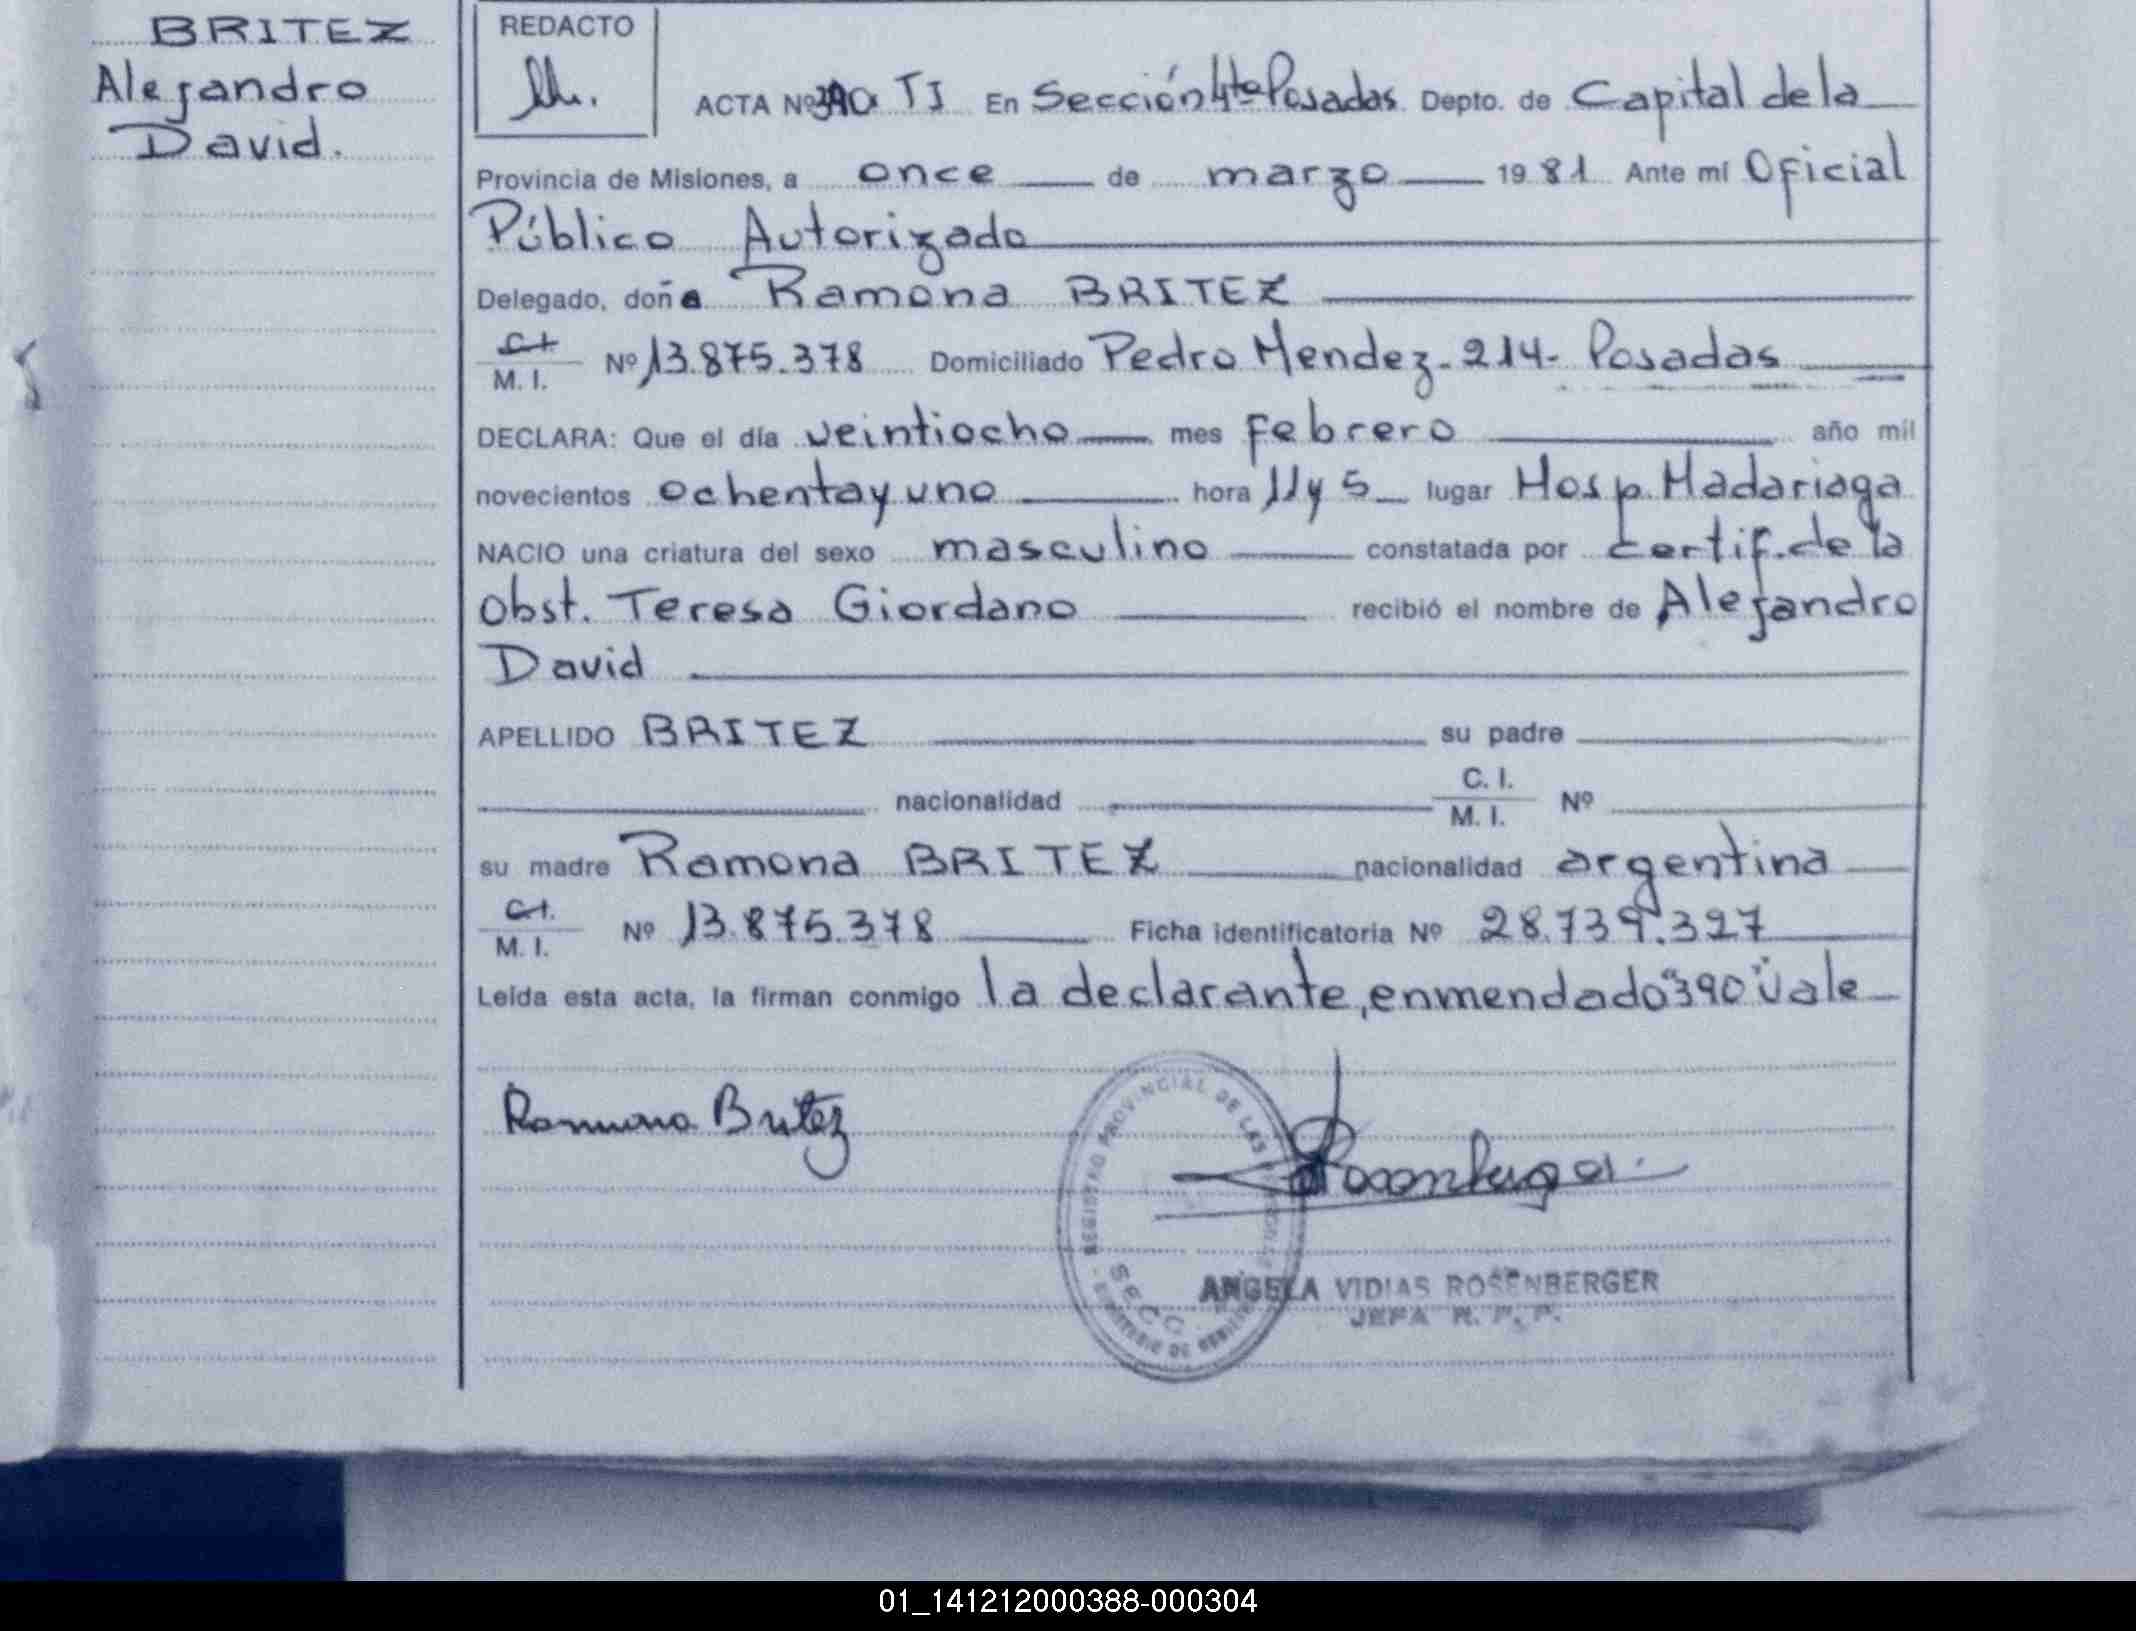 BRITEZ
Alejandro
David.
REDACTO
ACTA Nº 390 TI En Sección 4ta Posadas Depto. de Capital de la
Provincia de Misiones, a once de marzo 1981 Ante mí Oficial
Público Autorizado
Delegado, doña Ramona BRITEZ
C.I.
M. I. Nº 13.875.378 Domiciliado Pedro Mendez - 214 - Posadas
DECLARA: Que el día veintiocho mes febrero año mil
novecientos ochenta y uno hora 11 y 5 lugar Hosp. Madariaga
NACIO una criatura del sexo masculino constatada por certif. de la
Obst. Teresa Giordano recibió el nombre de Alejandro
David
APELLIDO BRITEZ su padre
nacionalidad C. I.
M. I. Nº
su madre Ramona BRITEZ nacionalidad argentina
C.I.
M. I. Nº 13.875.378 Ficha identificatoria Nº 28.739.327
Leída esta acta, la firman conmigo la declarante, enmendado "390" vale
Ramona Britez
REGISTRO PROVINCIAL DE LAS
SECC.
Rosenberger
ANGELA VIDIAS ROSENBERGER
JEFA R. P. P.
01_141212000388-000304